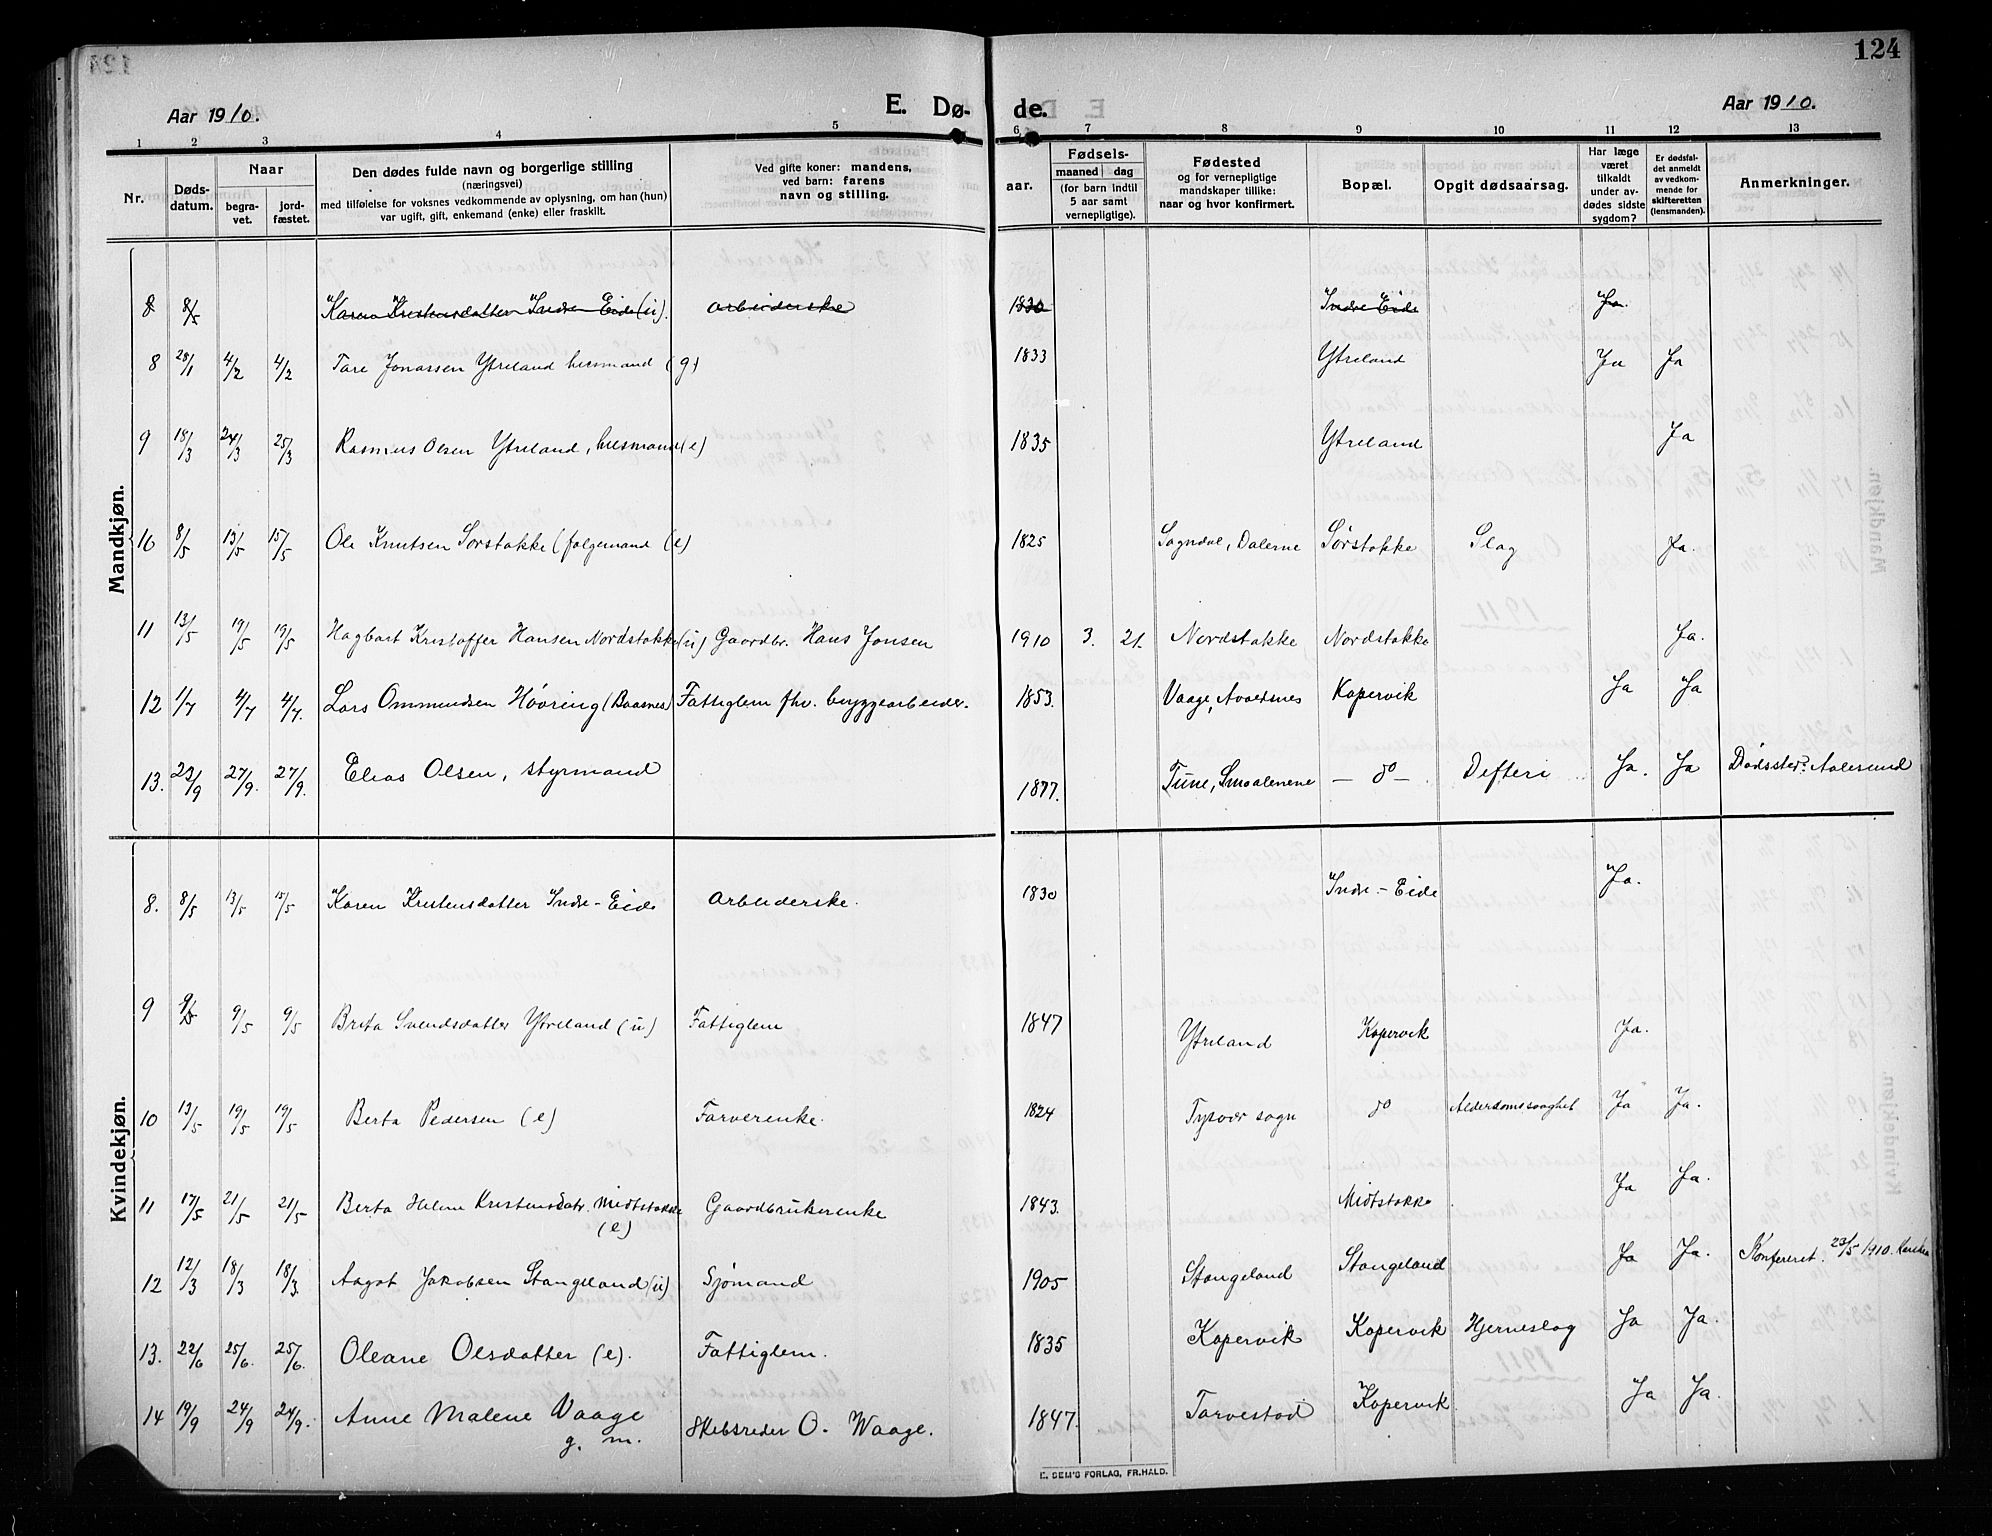 124
Aar 1910.
E. Dø-
de.
Aar 1910.
1 2 3 4 5 6 7 8 9 10 11 12 13
Nr.
Døds-
datum.
Naar
begra-
vet.
jord-
fæstet.
Den dødes fulde navn og borgerlige stilling
(næringsvei)
med tilføielse for voksnes vedkommende av oplysning, om han (hun)
var ugift, gift, enkemand (enke) eller fraskilt.
Ved gifte koner: mandens,
ved barn: farens
navn og stilling.
aar.
Fødsels-
maaned dag
(for barn indtil
5 aar samt
vernepligtige).
Fødested
og for vernepligtige
mandskaper tillike:
naar og hvor konfirmert.
Bopæl.
Opgit dødsaarsag.
Har læge
været
tilkaldt
under av-
dødes sidste
sygdom?
Er dødsfal-
det anmeldt
av vedkom-
mende for
skifteretten
(lensmanden).
Anmerkninger.
Mandkjøn.
8 8/5 Karen Kristensdatter Indre Eide (u). arbeiderske 1830 Indre Eide Ja.
8 28/1 4/2 4/2 Tore Jonassen Ytreland husmand (g) 1833 Ytreland Ja Ja
9 18/3 24/3 25/3 Rasmus Olsen Ytreland, husmand (e) 1835 Ytreland Ja
10 8/5 13/5 15/5 Ole Knutsen Sørstokke (folgemand (e) 1825 Sogndal, Dalerne Sørstokke Slag Ja.
11 13/5 19/5 19/5 Hagbart Kristoffer Hansen Nordstokke (u) Gaardbr. Hans Jonsen 1910 3. 21. Nordstokke Nordstokke Ja.
12 1/7 4/7 4/7. Lars Ommundsen Høvring (Baasnes) Fattiglem fhv. bryggearbeider. 1853. Vaage, Avaldsnes Kopervik Ja Ja
13. 23/9 27/9. 27/9. Elias Olsen, styrmand 1877. Tune, Smaalenene — do — Difteri Ja. Ja Dødssted: Aalesund
Kvindekjøn.
8. 8/5 13/5 15/5 Karen Kristensdatter Indre-Eide arbeiderske. 1830 Indre-Eide Ja.
9 9/5 9/5 Brita Svendsdatter Ytreland (u) Fattiglem 1847 Ytreland Kopervik Ja.
10 13/5 19/5 19/5 Berta Pedersen (e) Farverenke. 1824 Tysvær sogn do Alderdomssvaghet Ja Ja.
11 17/5 21/5 21/5 Berta Helene Kristensdatr. Midtstokke Gaardbrukerenke 1843. Midtstokke Ja Ja.
(e)
12 12/3 18/3 18/3. Aagot Jakobsen Stangeland (u) Sjømand 1905 Stangeland Stangeland Ja Ja. Konfereret 23/5 1910.
13. 22/6 25/6. 25/6. Oleane Olsdatter (e). Fattiglem. 1835 Kopervik Kopervik Hjerneslag Ja Ja.
14 19/9 24/9 24/9. Anne Malene Vaage Skibsreder O. Waage. 1847. Torvestad Kopervik Ja Ja.
g. m.
E. SEM'S FORLAG, FR.HALD.